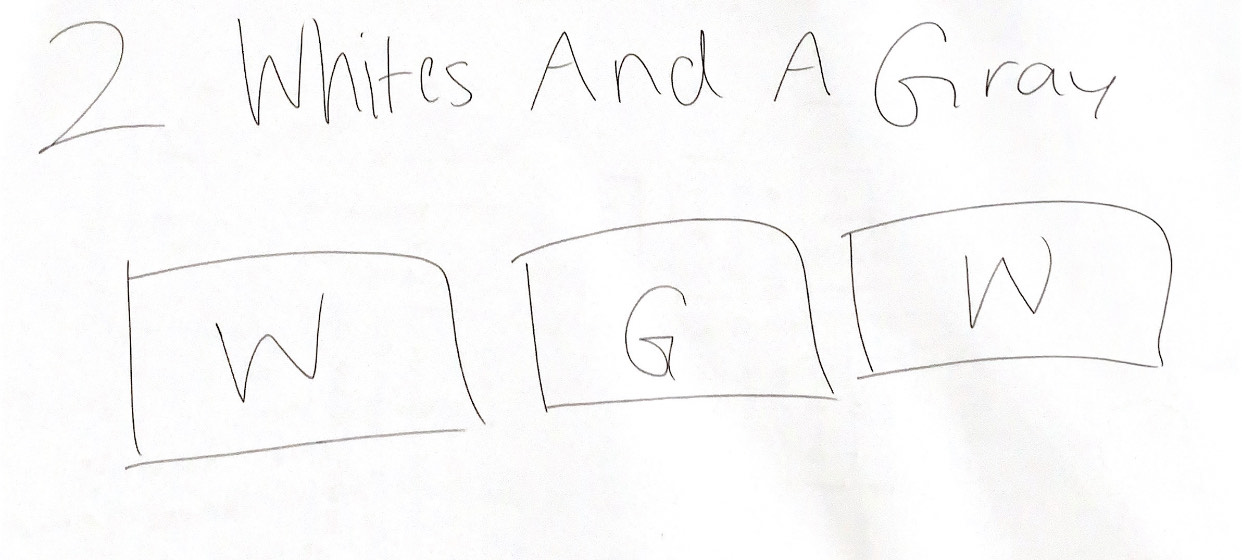 2 Whites And A Gray
W G W